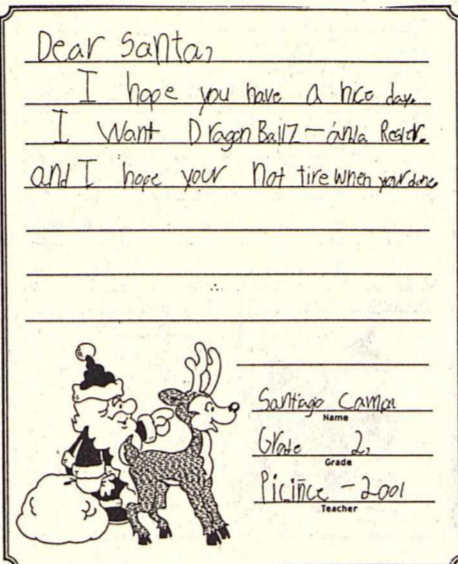 Dear Santa,
I hope you have a nice day.
I Want Dragon Ball Z -
and I hope your not tire when your done
Santiago
Name
Grade 2,
Grade
Picince - 2001
Teacher